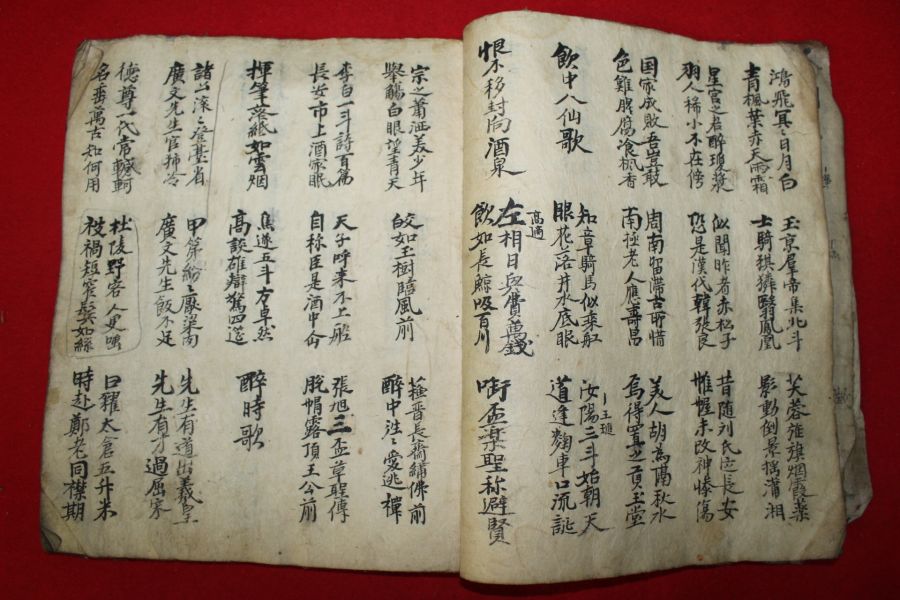 鴻飛冥〻日月白
青楓葉赤天雨霜
玉京羣帝集北斗
騎猉獜翳鳳凰
芙蓉旌旗烟霞落
影動倒景搖瀟湘
星宮之君醉瓊漿
羽人稀小不在傍
似聞昨者赤松子
恐是漢代韓張良
昔隨刘氏定長安
惟幄未改神慘傷
国家成敗吾豈敢
色難腥腐飡楓香
周南留滯古所惜
南極老人應壽昌
美人胡為隔秋水
焉得置之貢玉堂
飲中八仙歌
知章騎馬似乘舡
眼花落井水底眠
汝陽三斗始朝天
道逢麴車口流涎
恨不移封向酒泉
高適
左相日興費萬錢
飲如長鯨吸百川
啣盃樂聖称避賢
宗之蕭洒美少年
舉觴白眼望青天
皎如玉樹臨風前
蘇晉長齋繡佛前
醉中往〻愛逃禪
李白一斗詩百篇
長安市上酒家眠
天子呼来不上船
自称臣是酒中仙
張旭三盃草聖傳
脫帽露頂王公前
揮筆落紙如雲烟
焦遂五斗方卓然
高談雄辯驚四筵
醉時歌
諸公滾〻登臺省
廣文先生官独冷
甲第紛〻厭粱肉
廣文先生飯不足
先生有道出羲皇
先生有才過屈宋
德尊一代常轗軻
名垂萬古知何用
杜陵野客人更嗤
被褐短窄鬂如絲
日糴太倉五升米
時赴鄭老同襟期